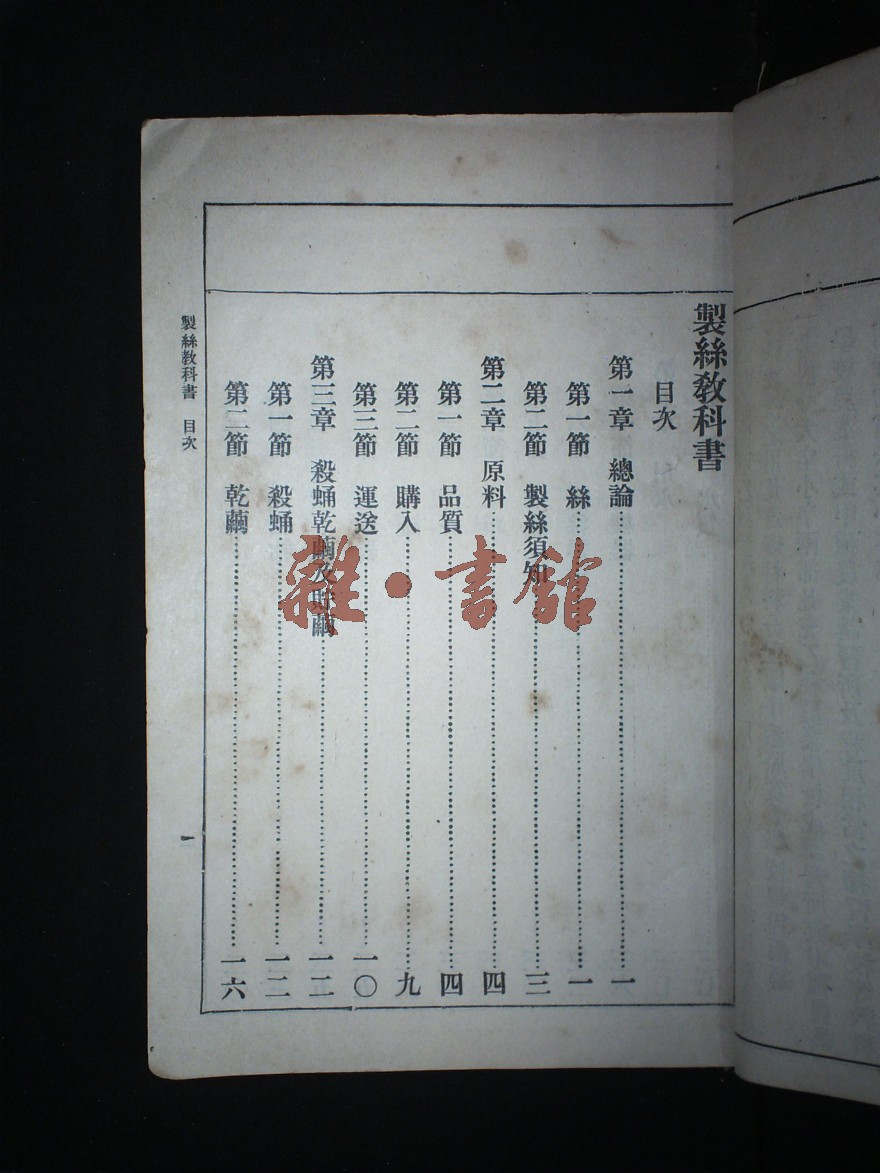 製絲教科書
目次
第一章 總論 一
第一節 絲 一
第二節 製絲須知 三
第二章 原料 四
第一節 品質 四
第二節 購入 九
第三節 運送 一〇
第三章 殺蛹乾繭及貯繭 一二
第一節 殺蛹 一二
第二節 乾繭 一六
製絲教科書 目次 一
雜·書館